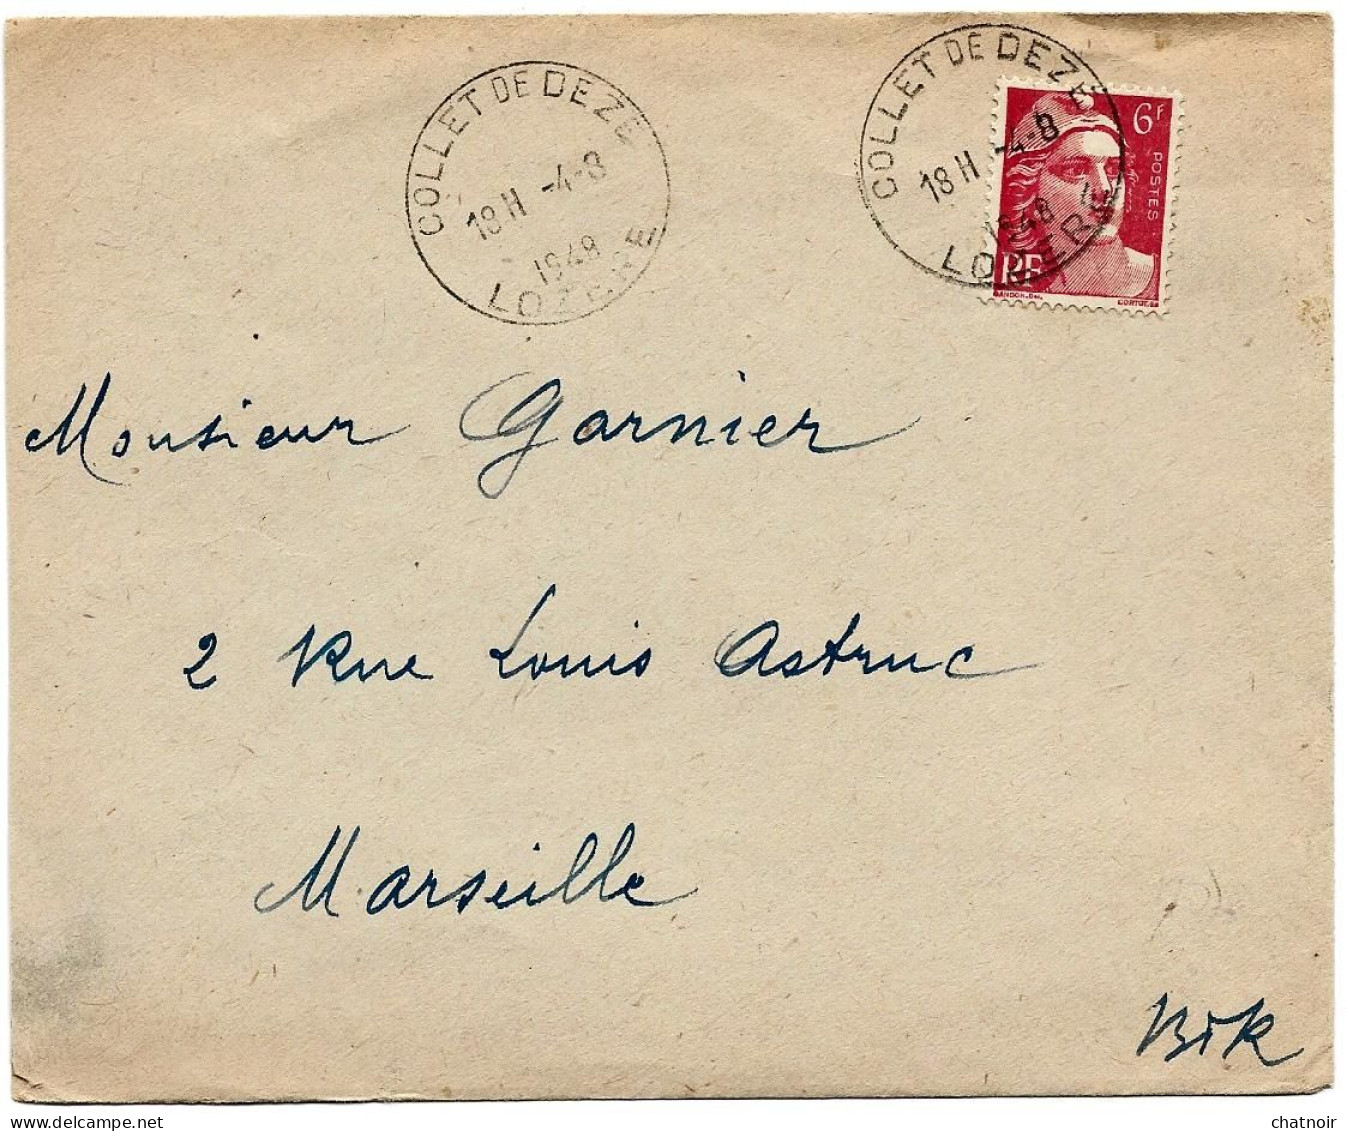 COLLET DE DEZE
18 H -4-8
1948
LOZERE
COLLET DE DEZE
18 H -4-8
1948
LOZERE
6F
POSTES
RF
GANDON.Del.
CORTOT.Sc
Monsieur Garnier
2 Rue Louis Astruc
Marseille
BdR
chatnoir